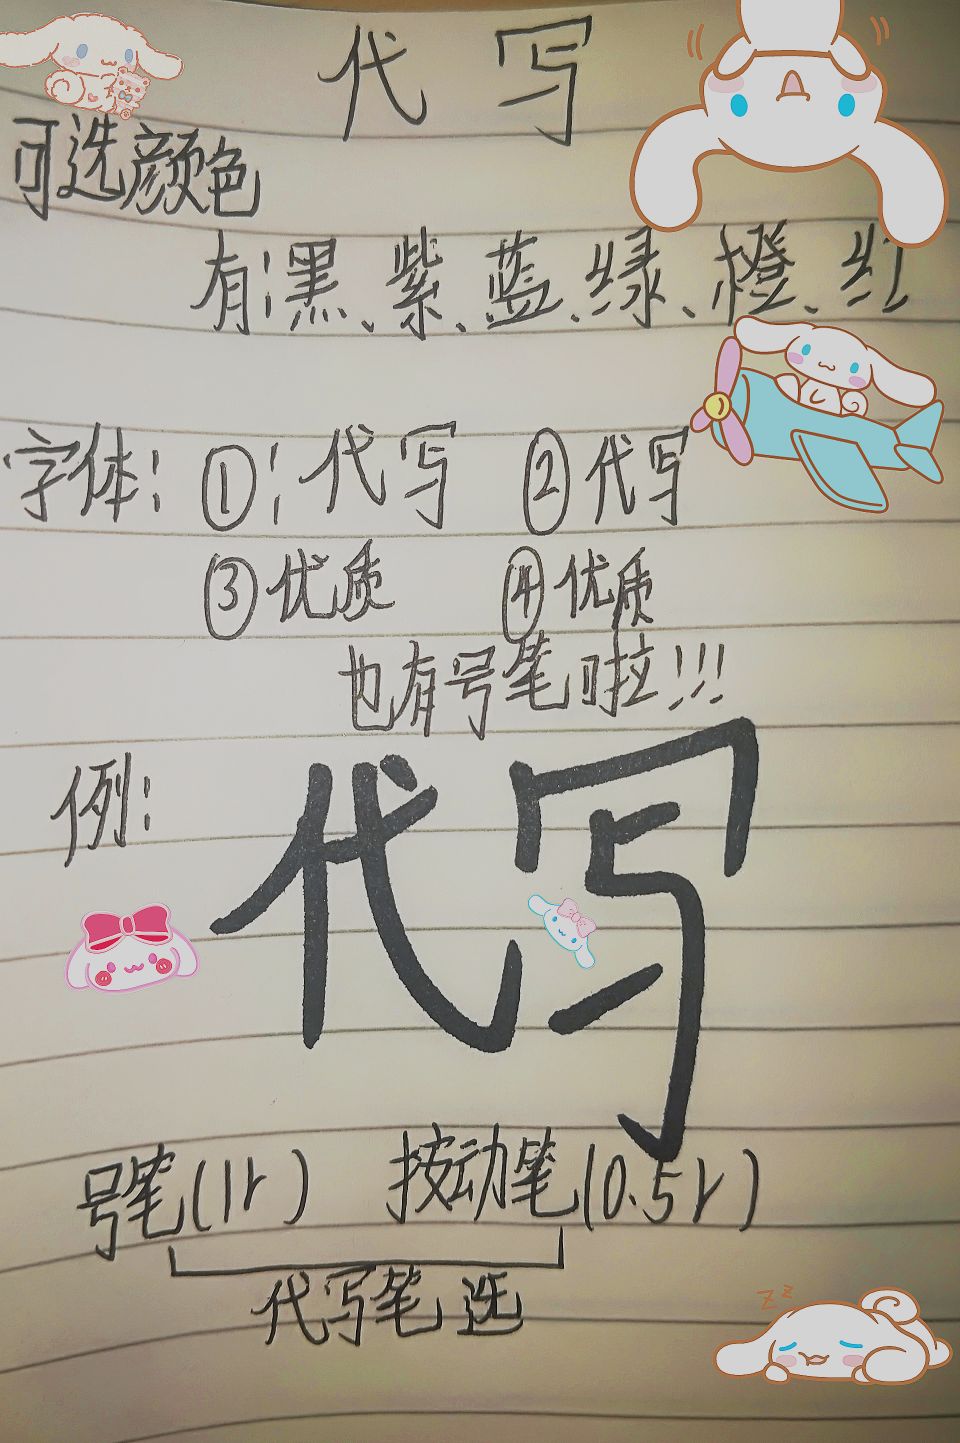 代写
可选颜色
有:黑、紫、蓝、绿、橙、红
字体: ①: 代写 ②代写
③优质 ④优质
也有号笔啦!!!
例:
代写
号笔(1r) 按动笔(0.5r)
代写笔 选
zz